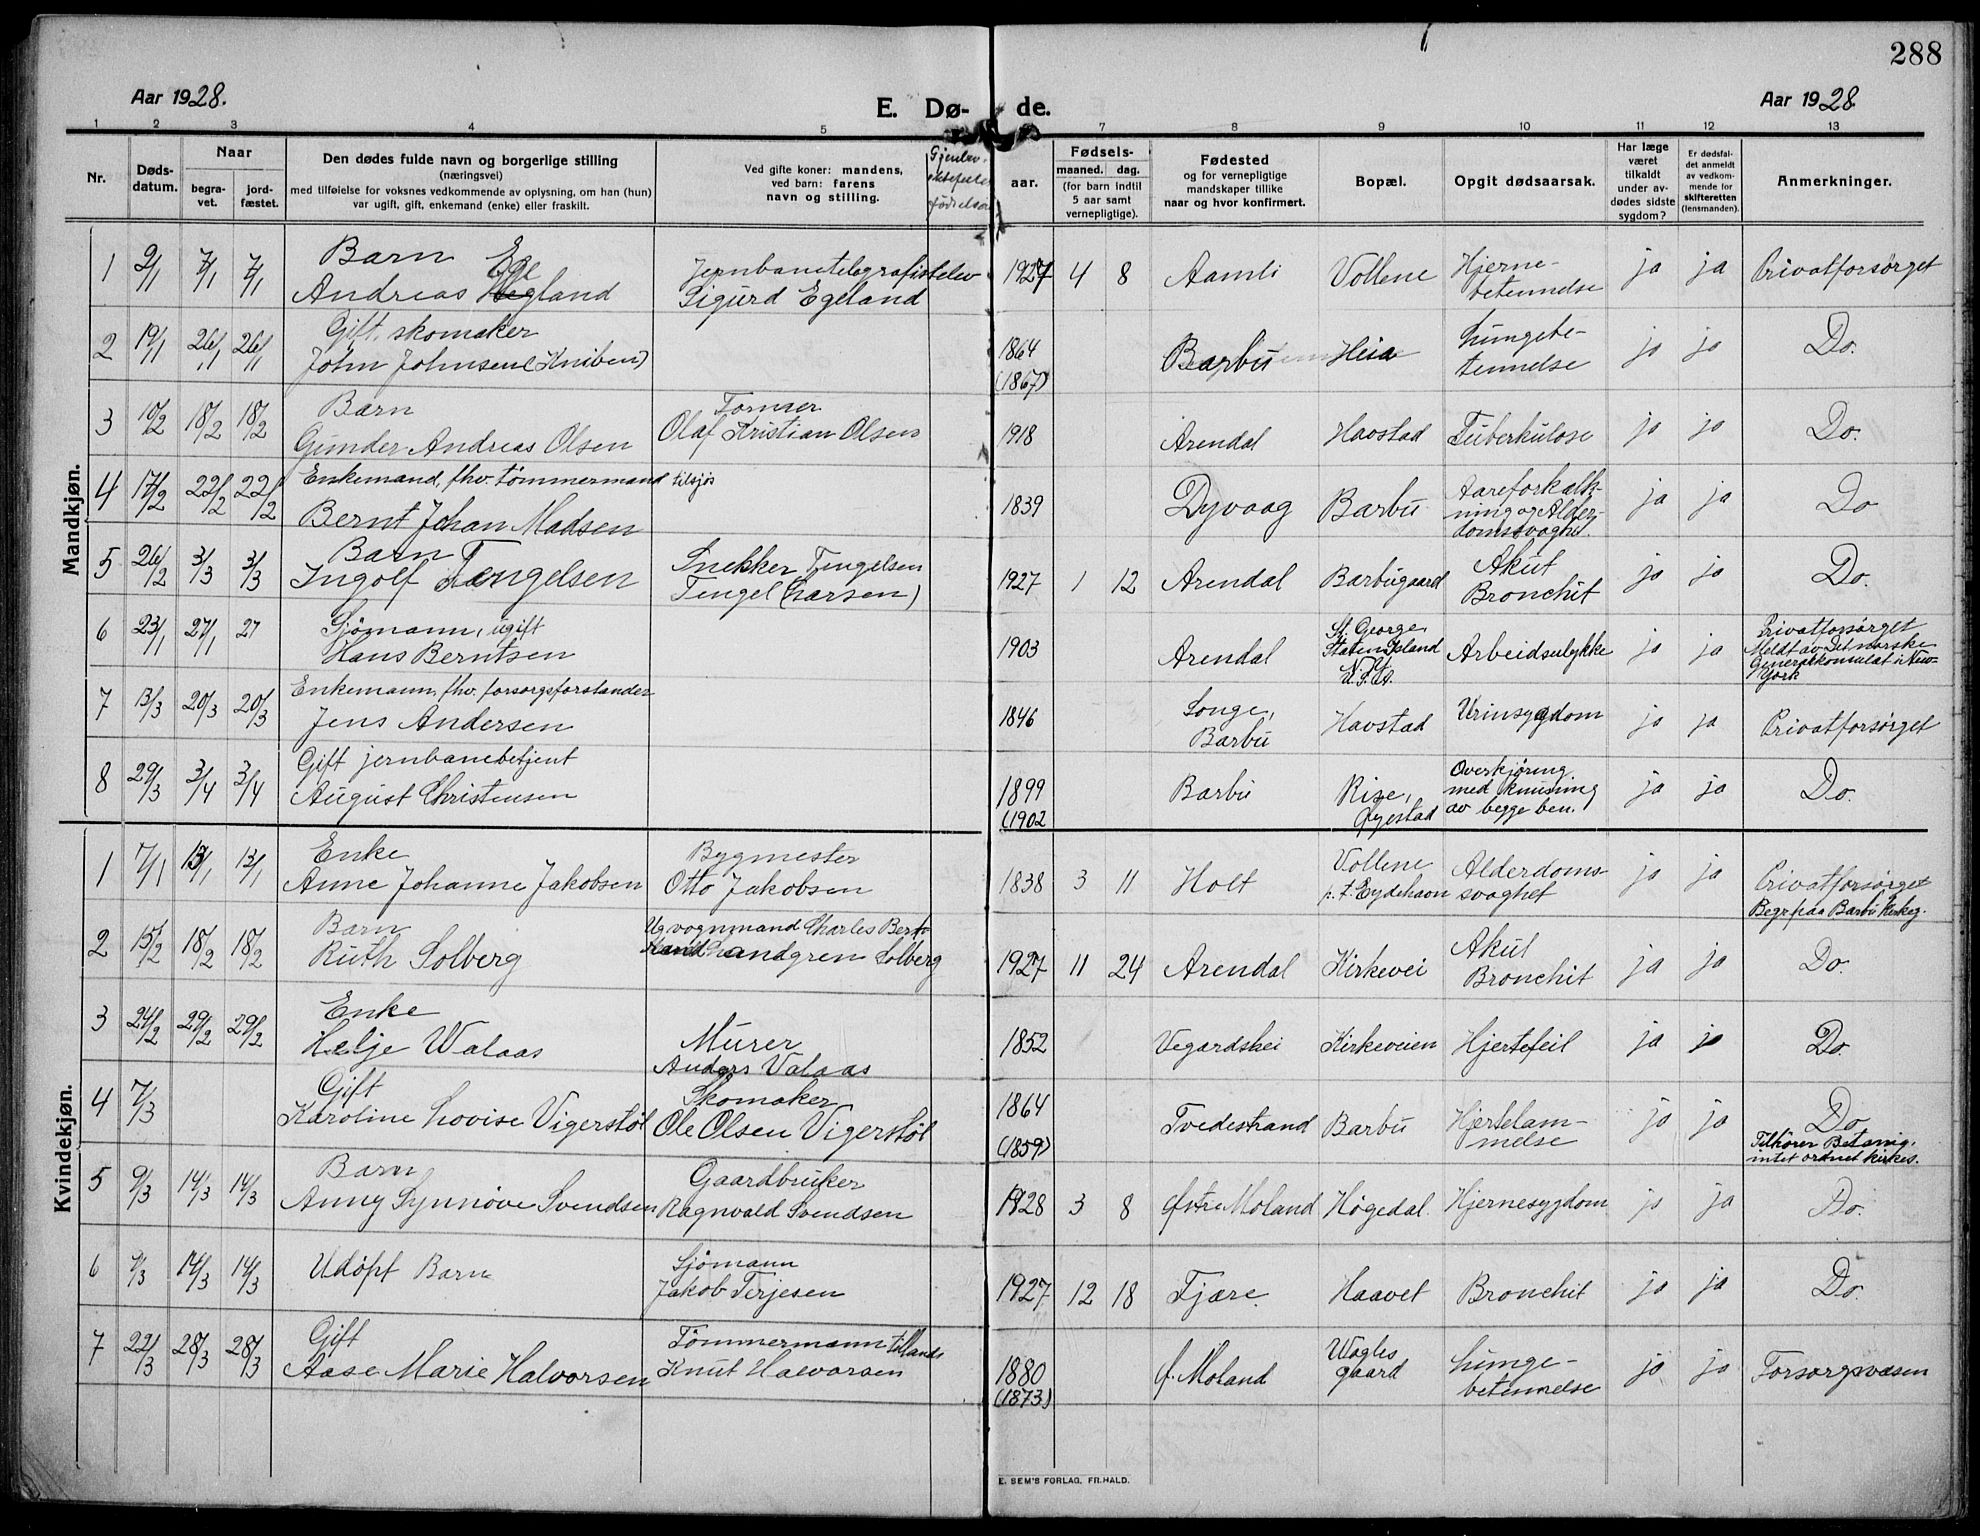 288
Aar 1928.
E. Dø- de.
Aar 1928.
1 2 3 4 5 7 8 9 10 11 12 13
Nr.
Døds-
datum.
Naar
begra-
vet.
jord-
fæstet.
Den dødes fulde navn og borgerlige stilling
(næringsvei)
med tilføielse for voksnes vedkommende av oplysning, om han (hun)
var ugift, gift, enkemand (enke) eller fraskilt.
Ved gifte koner: mandens,
ved barn: farens
navn og stilling.
Gjenlev.
ektefelles
fødselsaar
aar.
Fødsels-
maaned. dag.
(for barn indtil
5 aar samt
vernepligtige).
Fødested
og for vernepligtige
mandskaper tillike
naar og hvor konfirmert.
Bopæl.
Opgit dødsaarsak.
Har læge
været
tilkaldt
under av-
dødes sidste
sygdom?
Er dødsfal-
det anmeldt
av vedkom-
mende for
skifteretten
(lensmanden).
Anmerkninger.
Mandkjøn.
1 2/1 7/1 7/1 Barn
Andreas Egeland
Jernbanetelegrafistelev
Sigurd Egeland
1927 4 8 Aamli Vollene Hjerne-
betennelse ja ja Privatforsørget
2 19/1 26/1 26/1 Gift, skomaker
John Johnsen (Kniben)
1864
(1867)
Barbu Hisø Lungebe-
tennelse ja ja Do.
3 10/2 18/2 18/2 Barn
Gunder Andreas Olsen
Formær
Olaf Kristian Olsen
1918 Arendal Havstad Tuberkulose ja ja Do.
4 17/2 22/2 22/2 Enkemand, fhv. tømmermand tilsjøs
Bernt Johan Madsen
1839 Dyvaag Barbu Aareforkalk-
ning og Alder-
domssvaghet. ja ja Do
5 26/2 3/3 3/3 Barn
Ingolf Tengelsen
Snekker Tengelsen
Tengel (Larsen)
1927 1 12 Arendal Barbugaard Akut
Bronchit ja ja Do.
6 23/1 27/1 27 Sjømann, ugift
Hans Berntsen
1903 Arendal St. George,
Staten Island
U.S.A.
Arbeidsulykke ja ja Privatforsørget
Meldt av Det norske
Generalkonsulat i New-
York
7 13/3 20/3 20/3 Enkemann, fhv. forsorgsforstander
Jens Andersen
1846 Songe,
Barbu Havstad Urinsygdom ja ja Privatforsørget
8 29/3 3/4 3/4 Gift jernbanebetjent
August Christensen
1899
(1902
Barbu Rise,
Øyestad
Overkjøring
med knusning
av begge ben. ja ja Do.
Kvindekjøn.
1 7/1 13/1 13/1 Enke
Anne Johanne Jakobsen
Bygmester
Otto Jakobsen
1838 3 11 Holt Vollene
p.t. Eydehavn
Alderdoms-
svaghet ja ja Privatforsørget
Begr. paa Barbu Kirkeg.
2 15/2 18/2 18/2 Barn
Ruth Solberg
Ug vognmand Charles Bert-
Landgren Solberg
1927 11 24 Arendal Kirkevei Akut
Bronchit ja ja Do.
3 24/2 29/2 29/2 Enke
Helje Walaas
Murer
Anders Valaas
1852 Vegardshei Kirkeveien Hjertefeil ja ja Do.
4 7/3 Gift
Karoline Lovise Vigerstøl
Skomaker
Ole Olsen Vigerstøl
1864
(1859)
Tvedestrand Barbu Hjertelam-
melse ja ja Do
Tilhører Betania,
intet ordnet kirkes.
5 9/3 14/3 14/3 Barn
Anny Synnøve Svendsen
Gaardbruker
Ragnvald Svendsen
1928 3 8 Østre Moland Høgedal. Hjernesygdom ja ja Do.
6 9/3 14/3 14/3 Udøpt Barn
Sjømann
Jakob Terjesen
1927 12 18 Fjære. Haavet Bronchit ja ja Do.
7 22/3 28/3 28/3 Gift
Aase Marie Halvorsen
Tømmermann tillands
Knut Halvorsen
1880
(1873)
Ø. Moland Wagles
gaard Lunge-
betennelse ja ja Forsorgsvæsen
E. SEM'S FORLAG, FR.HALD.